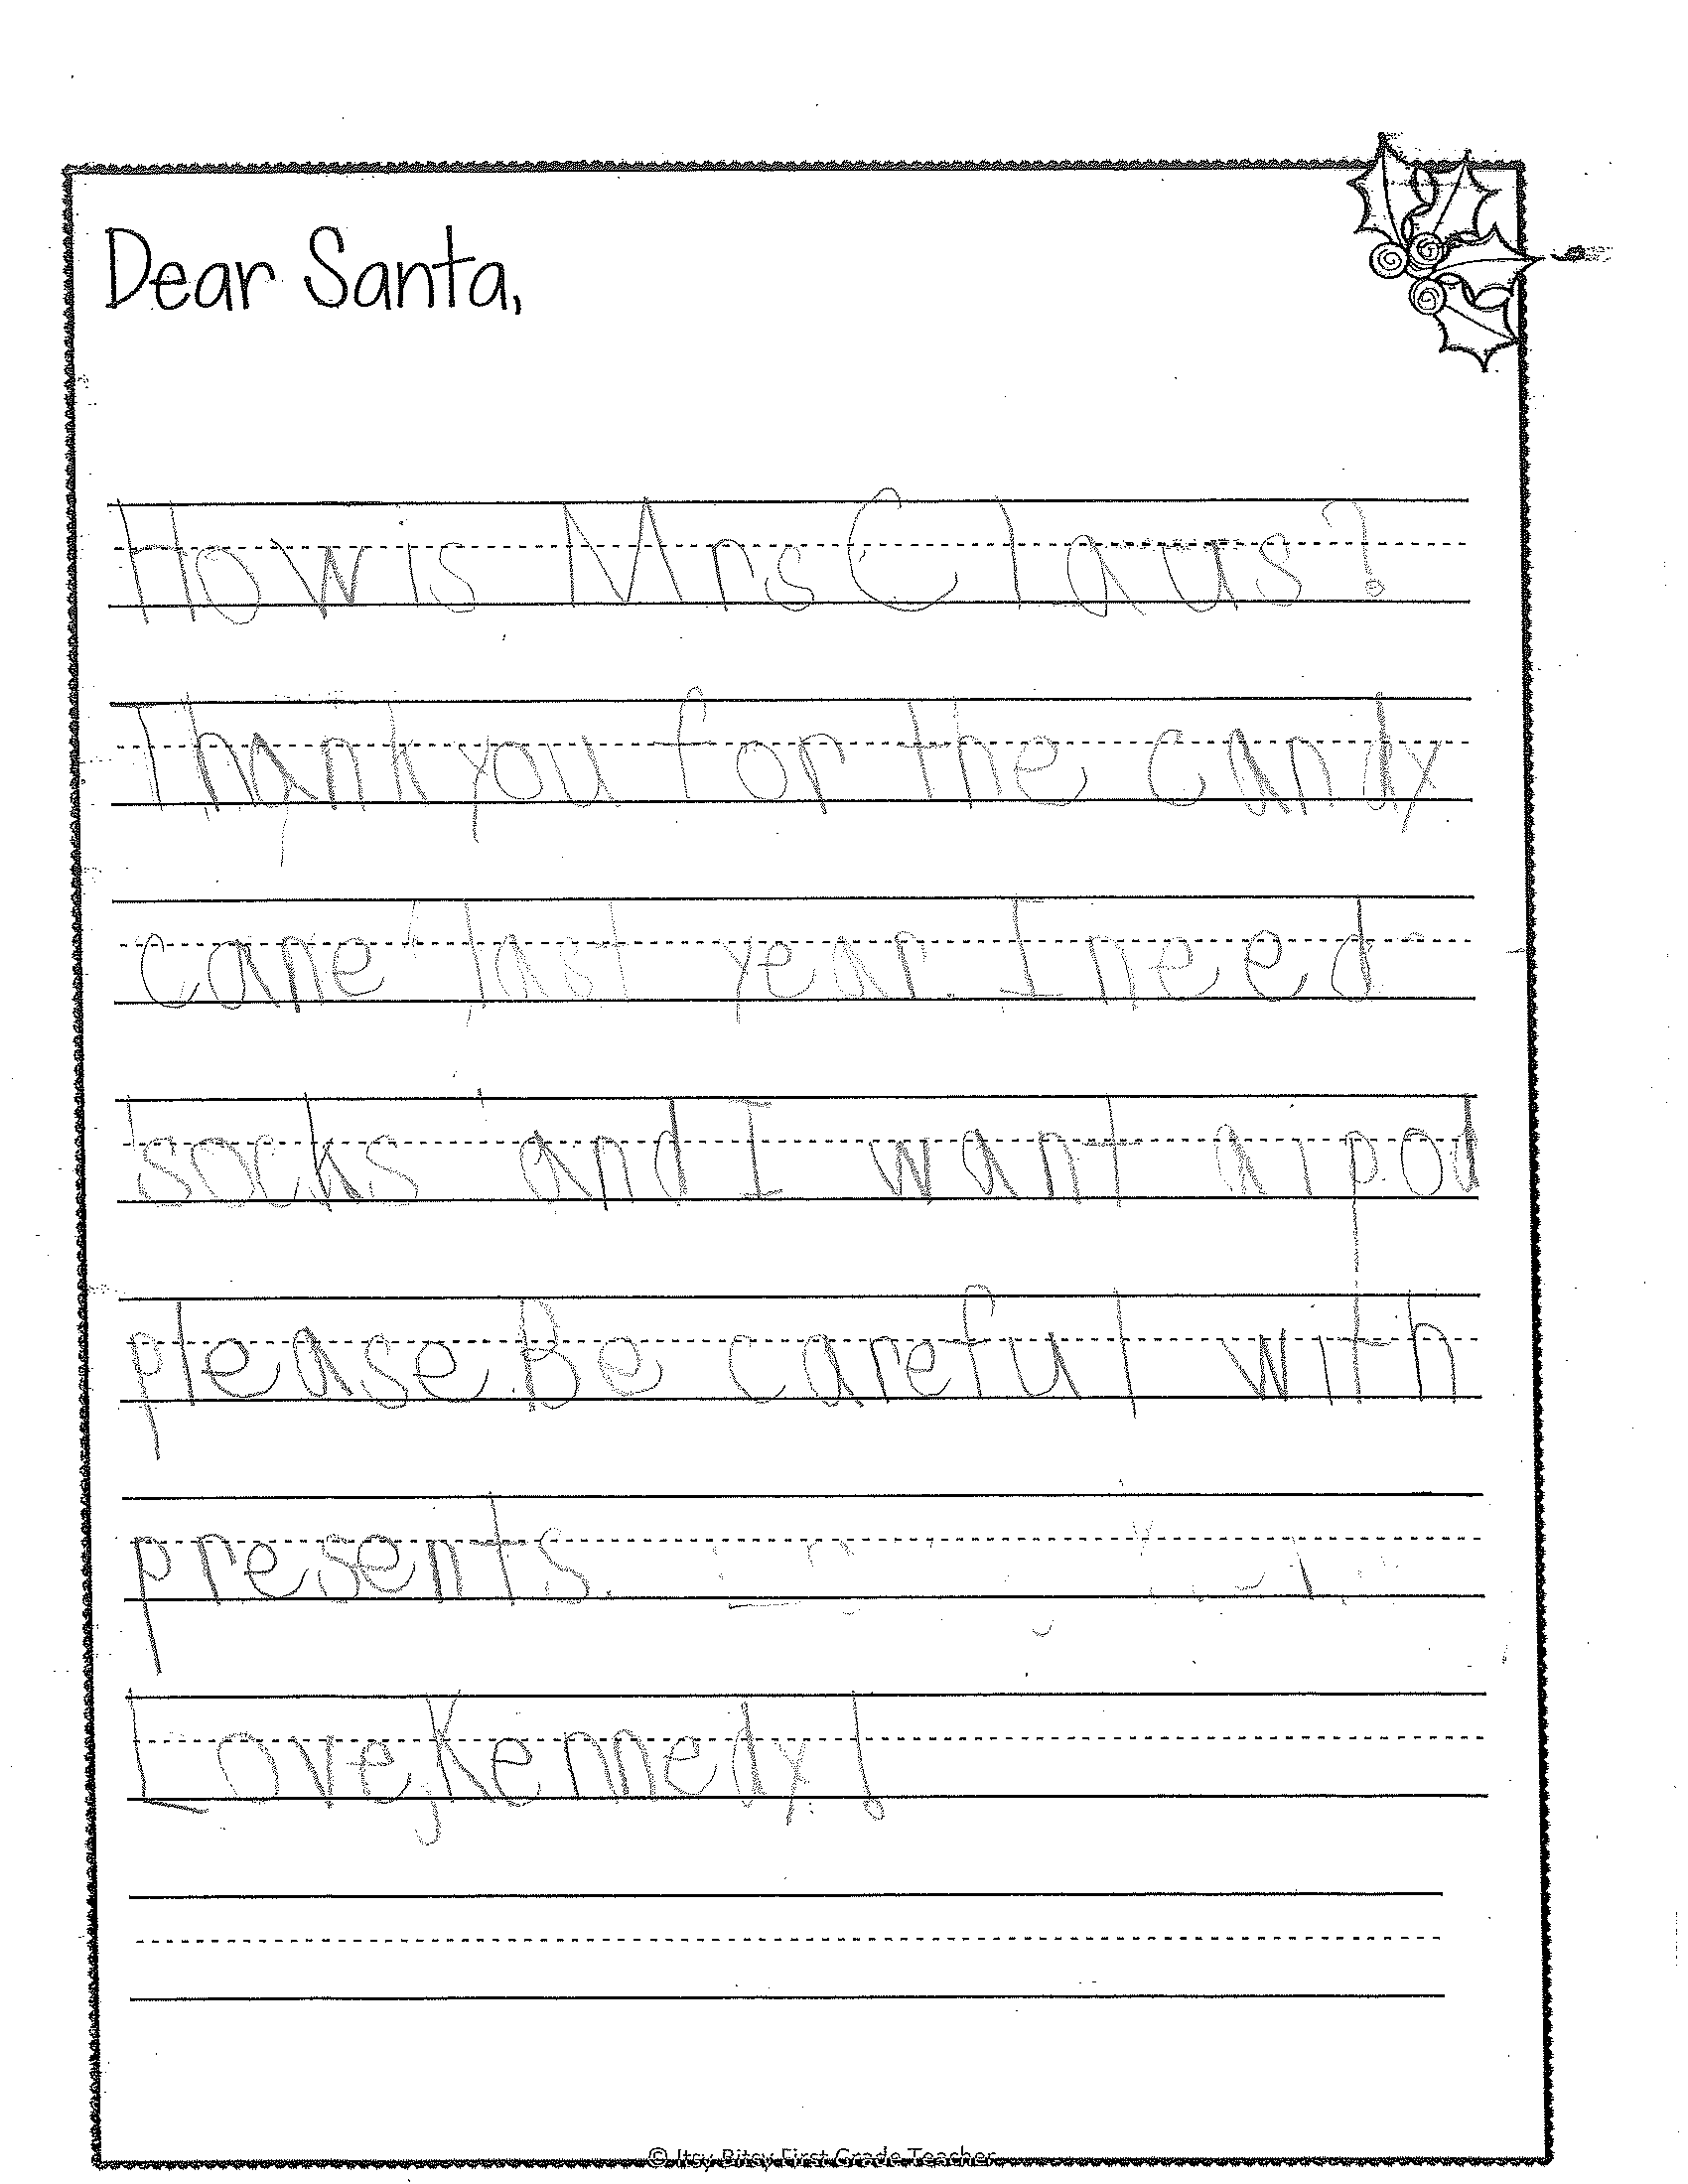 Dear Santa,
How is Mrs Claus?
Thank you for the candy
cane last year. I need
socks and I want airpod
please. Be careful with
presents.
Love, Kennedy!
© Itsy Bitsy First Grade Teacher